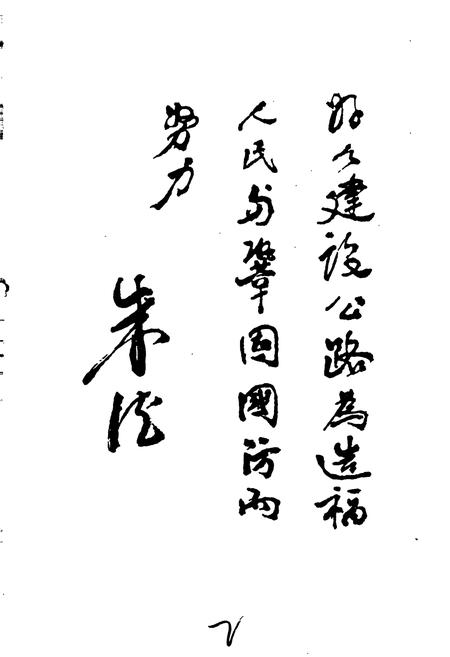 好々建设公路為造福
人民与鞏固國防而
努力
朱德